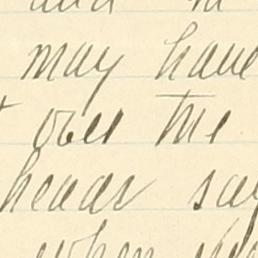 and
may have
over the
heads say
when